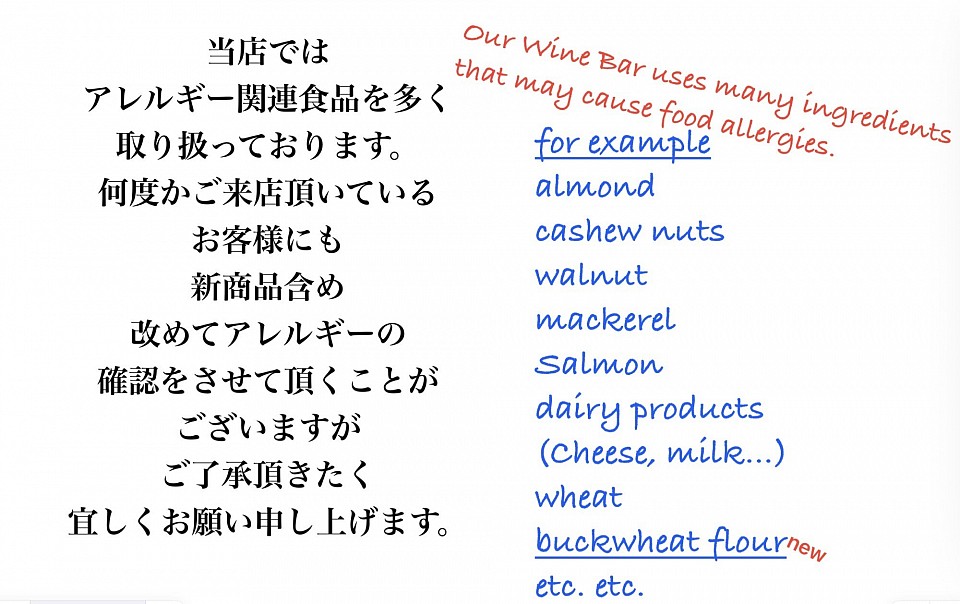 当店では
アレルギー関連食品を多く
取り扱っております。
何度かご来店頂いている
お客様にも
新商品含め
改めてアレルギーの
確認をさせて頂くことが
ございますが
ご了承頂きたく
宜しくお願い申し上げます。
Our Wine Bar uses many ingredients
that may cause food allergies.
for example
almond
cashew nuts
walnut
mackerel
Salmon
dairy products
(Cheese, milk...)
wheat
buckwheat flour new
etc. etc.